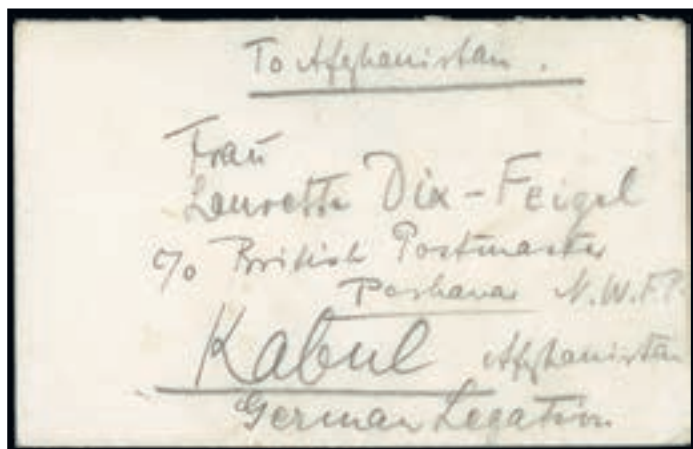 To Afghanistan.
Frau
Laurette Dix-Feigel
c/o British Postmaster
Peshawar N.W.F.P.
Kabul Afghanistan
German Legation